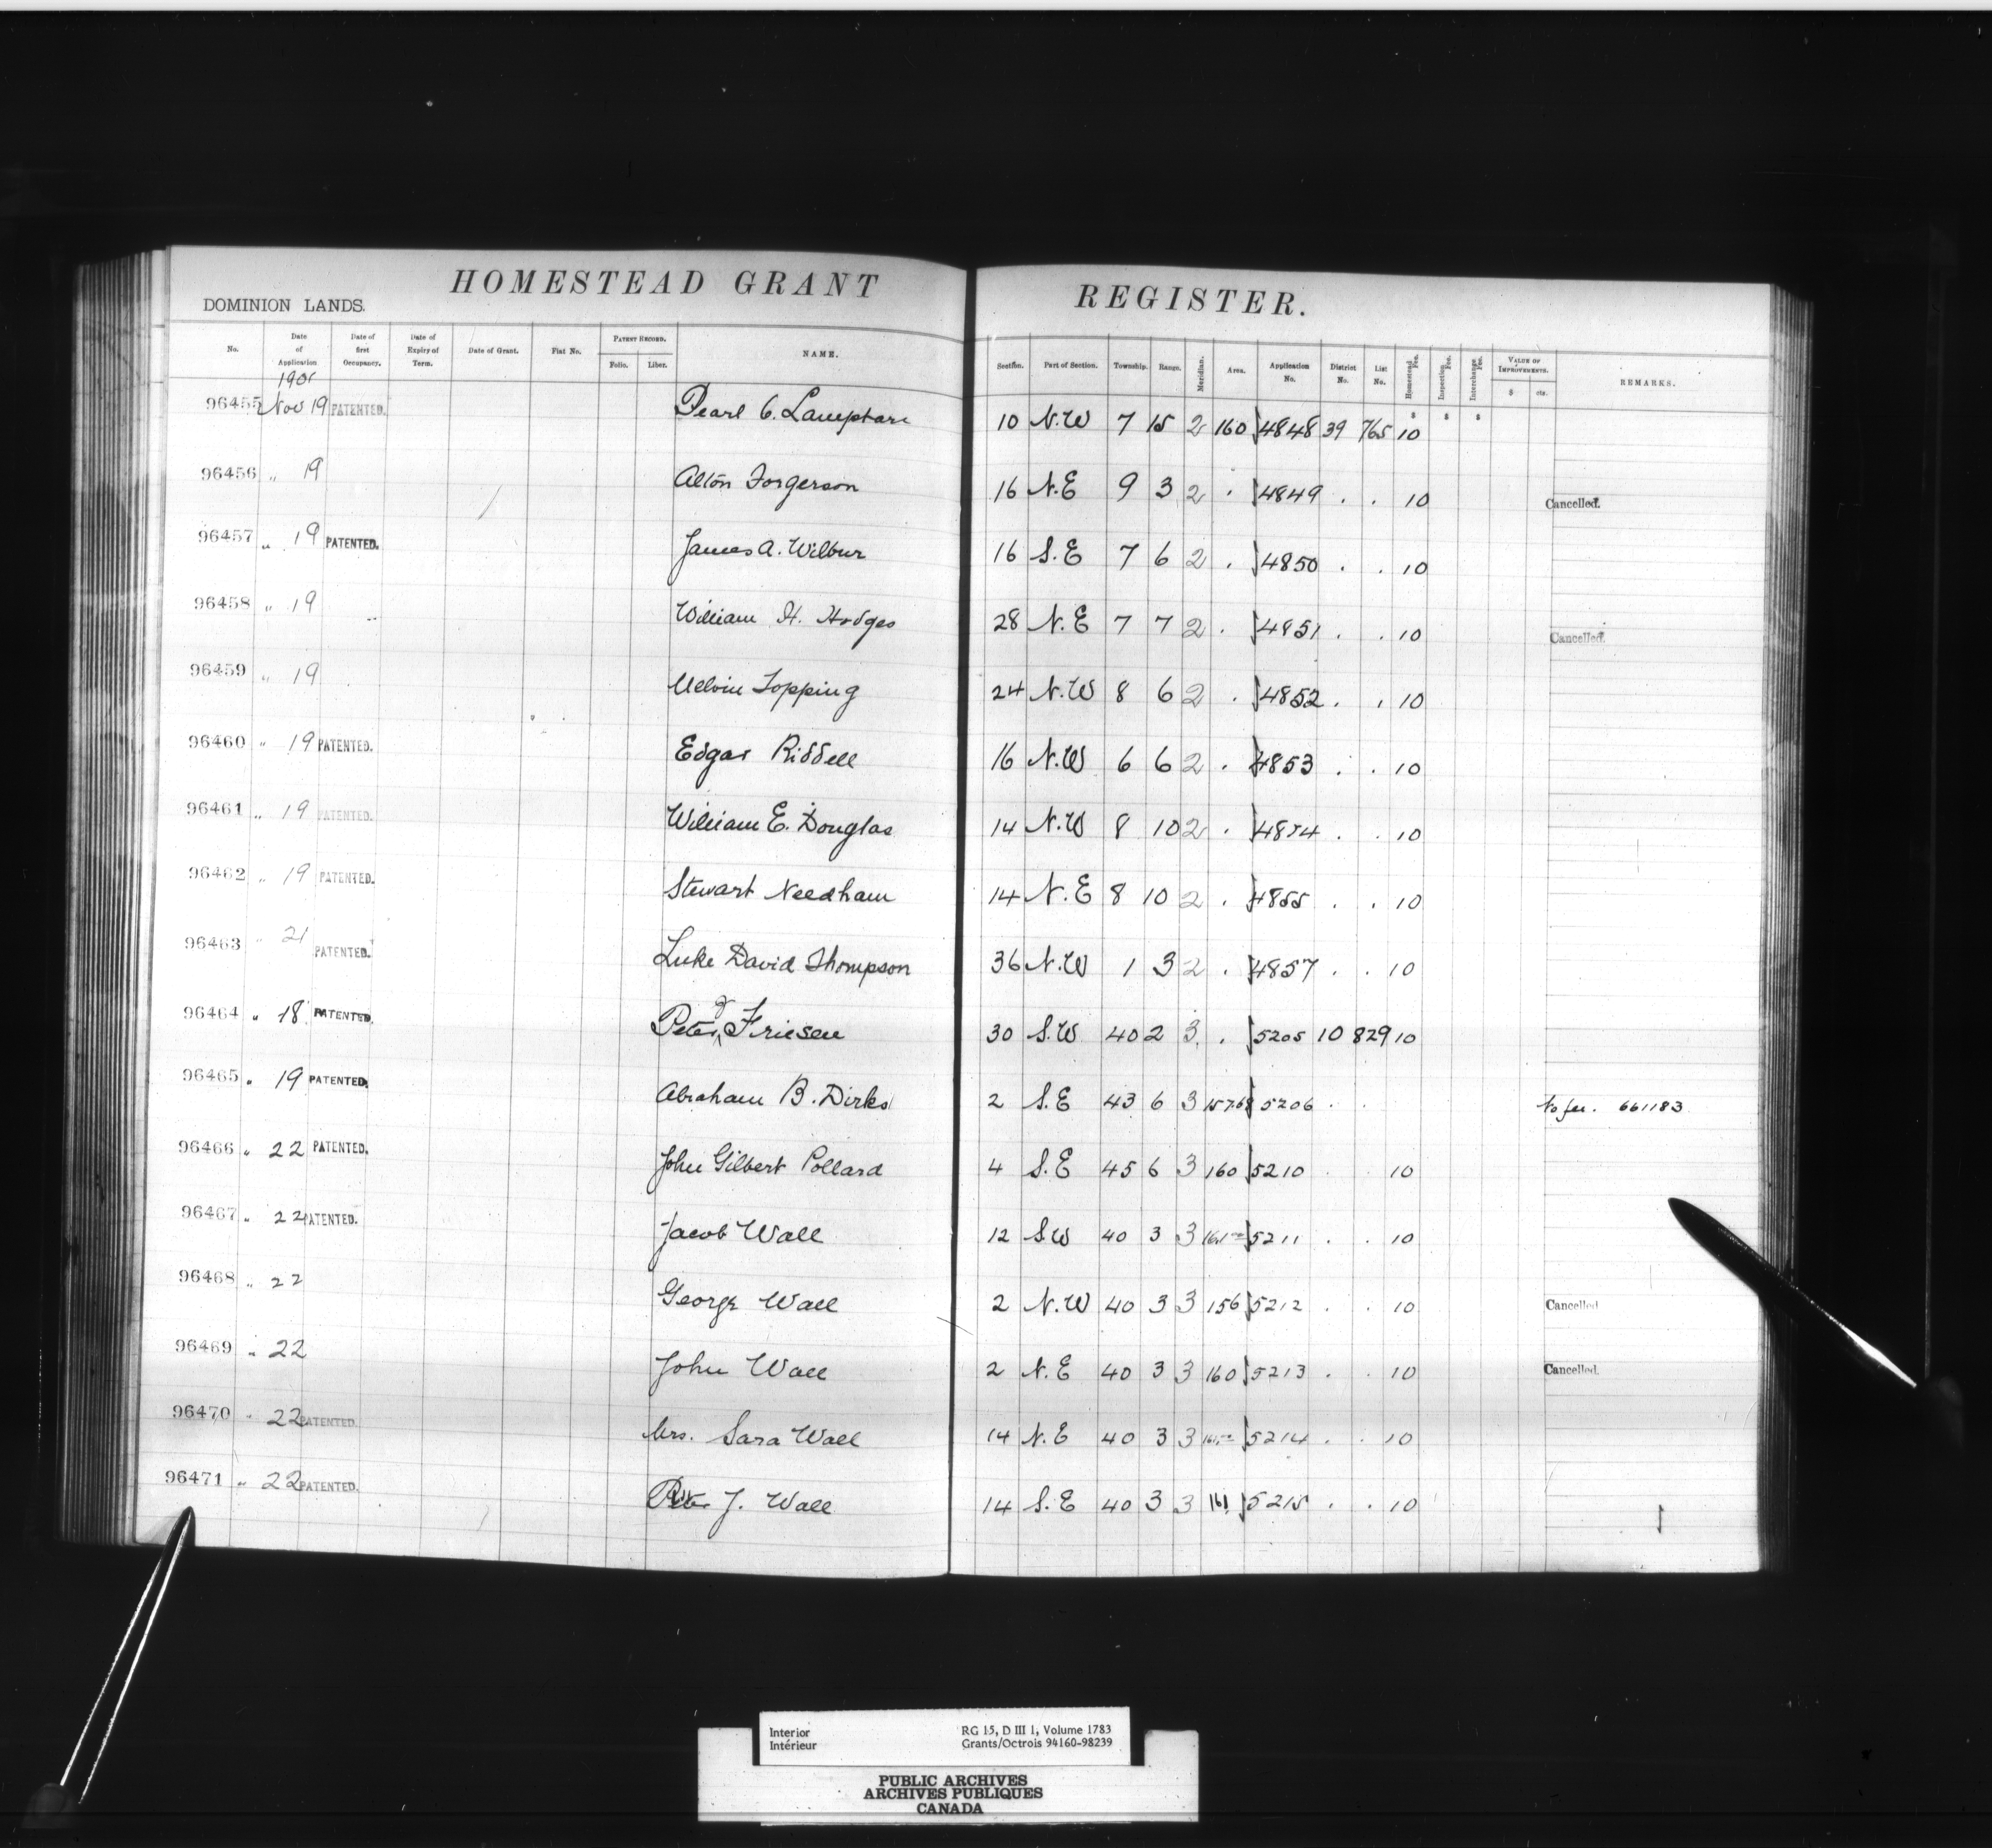 HOMESTEAD GRANT REGISTER.
DOMINION LANDS.
No. Date of Application Date of first Occupancy. Date of Expiry of Term. Date of Grant. Fiat No. PATENT RECORD. Folio. Liber. NAME. Section. Part of Section. Township. Range. Meridian. Area. Application No. District No. List No. Homestead Fee. Inspection Fee. Interchange Fee. VALUE OF IMPROVEMENTS. $ cts. REMARKS.
1901
96455 Nov 19 PATENTED. Pearl C. Lamphare 10 N.W 7 15 2 160 4848 39 765 $ 10 $ $
96456 " 19 Alton Forgerson 16 N.E 9 3 2 . 4849 . . 10 Cancelled.
96457 " 19 PATENTED. James A. Wilbur 16 S.E 7 6 2 . 4850 . . 10
96458 " 19 William H. Hodges 28 N.E 7 7 2 . 4851 . . 10 Cancelled.
96459 " 19 Melvin Topping 24 N.W 8 6 2 . 4852 . . 10
96460 " 19 PATENTED. Edgar Riddell 16 N.W 6 6 2 . 4853 . . 10
96461 " 19 PATENTED. William E. Douglas 14 N.W 8 10 2 . 4854 . . 10
96462 " 19 PATENTED. Stewart Needham 14 N.E 8 10 2 . 4855 . . 10
96463 " 21 PATENTED. Luke David Thompson 36 N.W 1 3 2 . 4857 . . 10
96464 " 18 PATENTED. Peter Friesen 30 S.W 40 2 3 . 5205 10 829 10
96465 " 19 PATENTED. Abraham B. Dirks 2 S.E 43 6 3 157.68 5206 . . No fee. 661183
96466 " 22 PATENTED. John Gilbert Pollard 4 S.E 45 6 3 160 5210 . . 10
96467 " 22 PATENTED. Jacob Wall 12 SW 40 3 3 5211 . . 10
96468 " 22 George Wall 2 N.W 40 3 3 156 5212 . . 10 Cancelled
96469 " 22 John Wall 2 N.E 40 3 3 160 5213 . . 10 Cancelled.
96470 " 22 PATENTED. Mrs. Sara Wall 14 N.E 40 3 3 5214 . . 10
96471 " 22 PATENTED. Peter J. Wall 14 S.E 40 3 3 161 5215 . . 10
Interior RG 15, D III 1, Volume 1783
Intérieur Grants/Octrois 94160-98239
PUBLIC ARCHIVES
ARCHIVES PUBLIQUES
CANADA